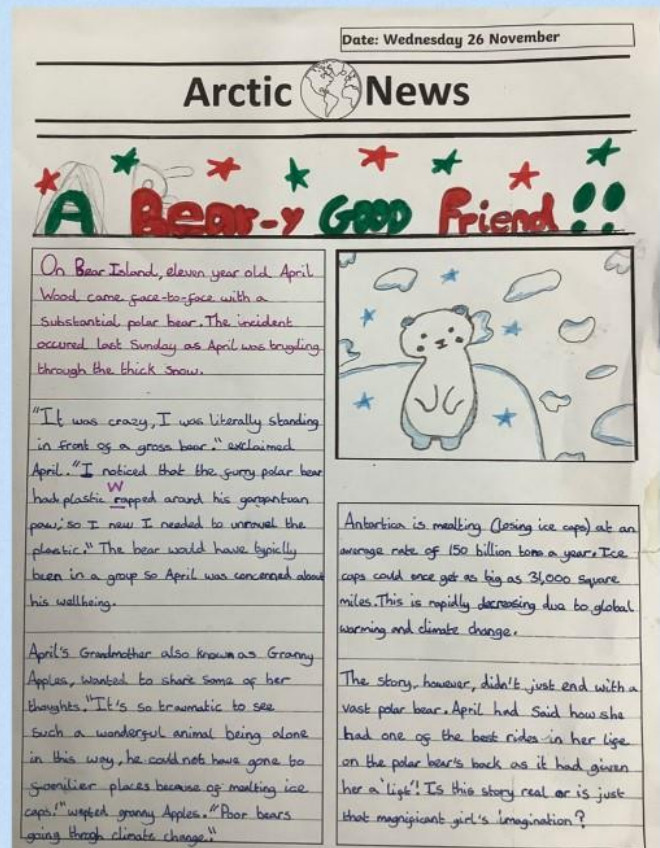 Date: Wednesday 26 November
Arctic News
A Bear-y Good Friend!!
On Bear Island, eleven year old April
Wood came face-to-face with a
substantial polar bear. The incident
occured last Sunday as April was trugding
through the thick snow.
"It was crazy, I was literally standing
in front of a gross bear." exclaimed
April. "I noticed that the furry polar bear
had plastic wrapped around his gargantuan
paw; so I new I needed to unravel the
plastic." The bear would have typiclly
been in a group so April was concerned about
his wellbeing.
April's Grandmother also known as Granny
Apples, wanted to share some of her
thoughts. "It's so traumatic to see
such a wonderful animal being alone
in this way, he could not have gone to
places because of mealting ice
caps!" wepted granny Apples. "Poor bears
going throgh climate change."
Antartica is mealting (losing ice caps) at an
average rate of 150 billion tons a year. Ice
caps could once get as big as 31,000 square
miles. This is rapidly decreasing due to global
warming and climate change.
The story, however, didn't just end with a
vast polar bear. April had said how she
had one of the best rides in her life
on the polar bear's back as it had given
her a 'lift'! Is this story real or is just
that magnificant girl's imagination?